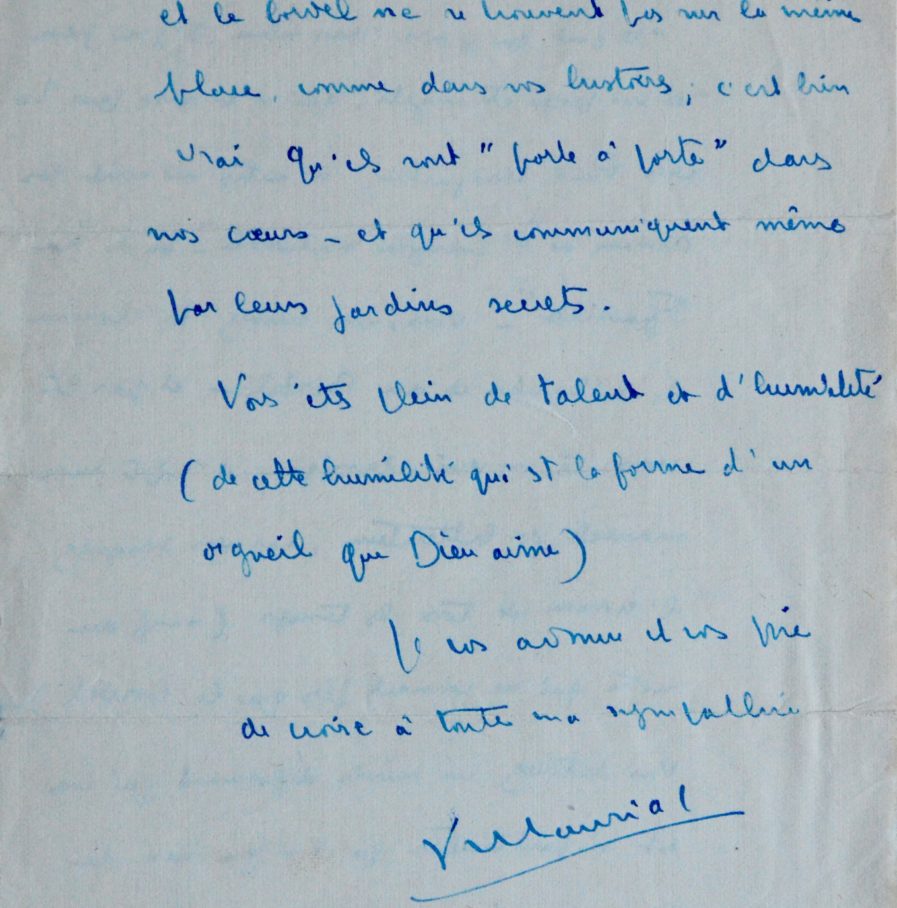 et le bordel ne se trouvent pas sur la même
place, comme dans vos histoires, c'est bien
vrai qu'ils sont "porte à porte" dans
nos cœurs - et qu'ils communiquent même
par leurs jardins secrets.
Vous êtes plein de talent et d'humilité
(de cette humilité qui est la forme d'un
orgueil que Dieu aime)
Je vous admire et vous prie
de croire à toute ma sympathie